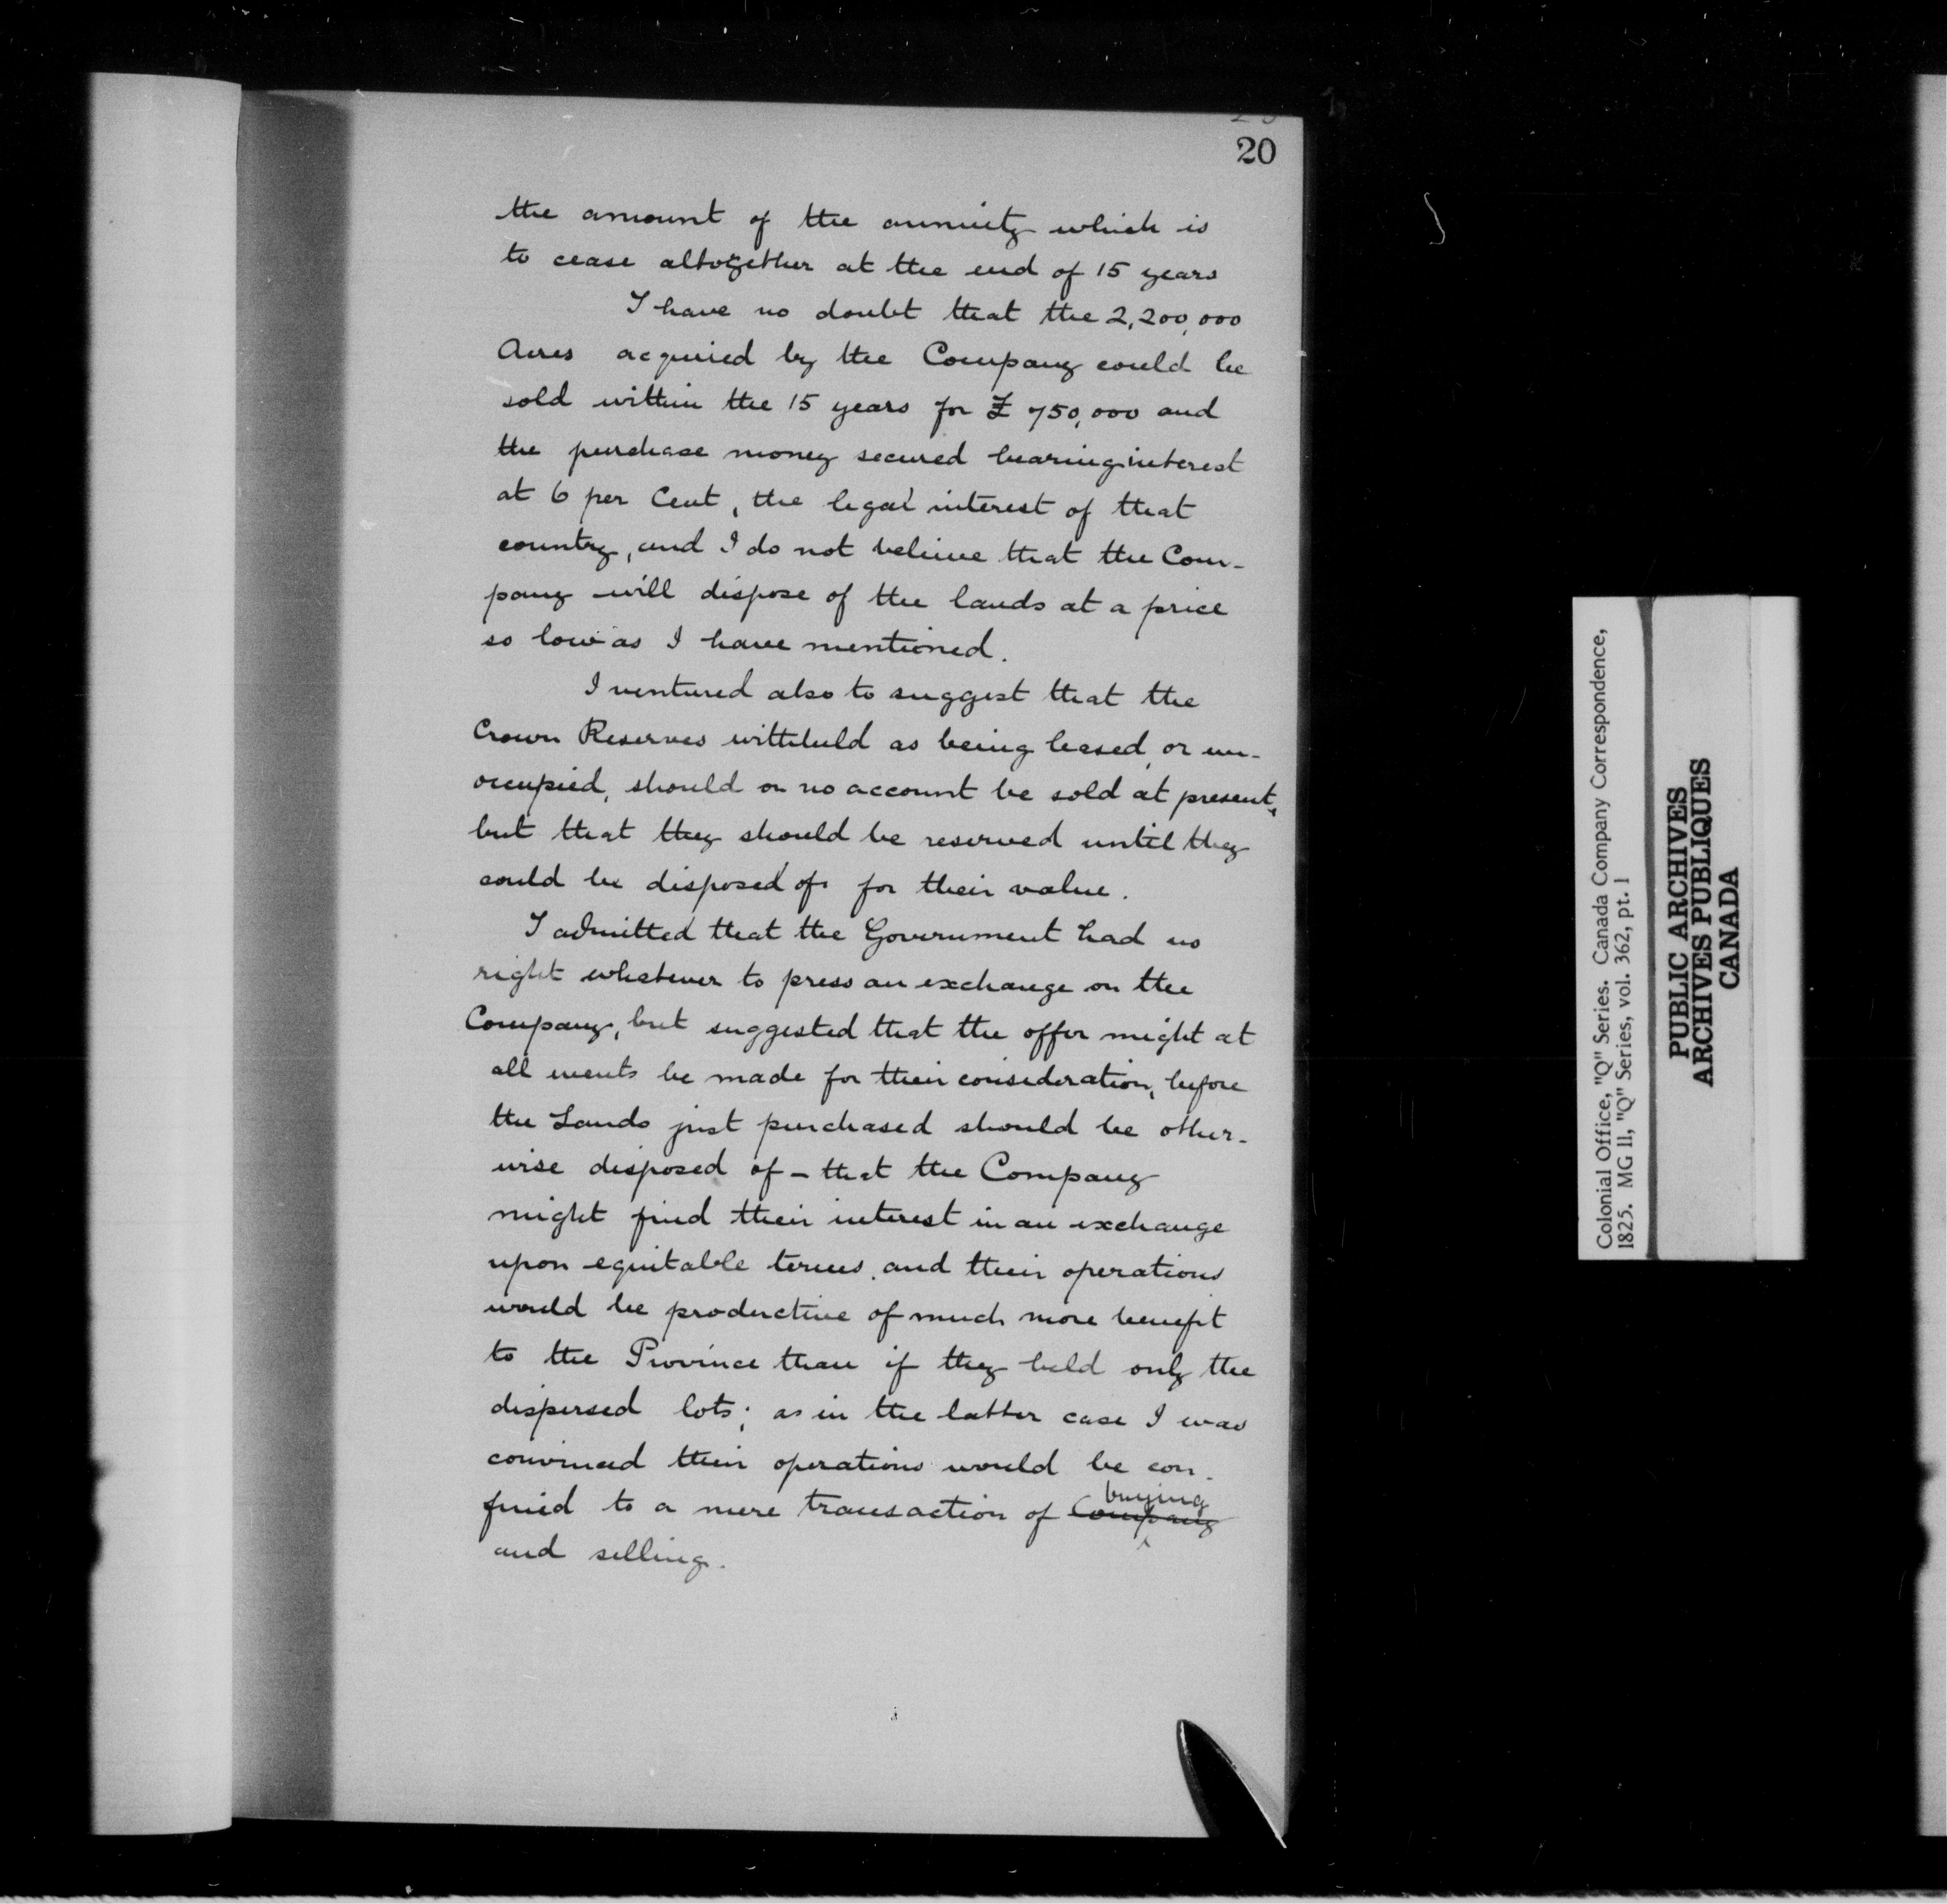 20
the amount of the annuity which is
to cease altogether at the end of 15 years
I have no doubt that the 2,200,000
Acres acquired by the Company could be
sold within the 15 years for £ 750,000 and
the purchase money secured bearing interest
at 6 per Cent, the legal interest of that
country, and I do not believe that the Com-
pany will dispose of the lands at a price
so low as I have mentioned.
I ventured also to suggest that the
Crown Reserves withheld as being leased, or un-
occupied, should on no account be sold at present,
but that they should be reserved until they
could be disposed of for their value.
I admitted that the Government had no
right whatever to press an exchange on the
Company, but suggested that the offer might at
all events be made for their consideration, before
the Lands just purchased should be other-
wise disposed of – that the Company
might find their interest in an exchange
upon equitable terms, and their operations
would be productive of much more benefit
to the Province than if they held only the
dispersed lots; as in the latter case I was
convinced their operations would be con-
fined to a mere transaction of Company buying
and selling.
Colonial Office, "Q" Series. Canada Company Correspondence,
1825. MG 11, "Q" Series, vol. 362, pt. 1
PUBLIC ARCHIVES
ARCHIVES PUBLIQUES
CANADA